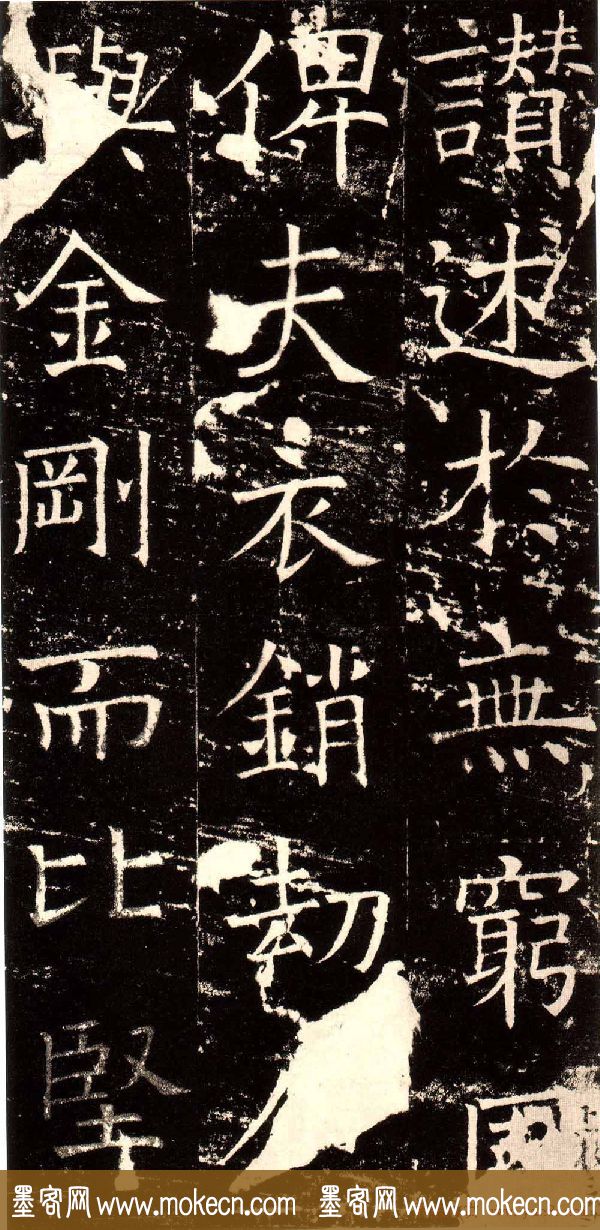 讃述於無窮
俾夫衣銷劫
與金剛而比堅
墨客网 www.mokecn.com 墨客网 www.mokecn.com